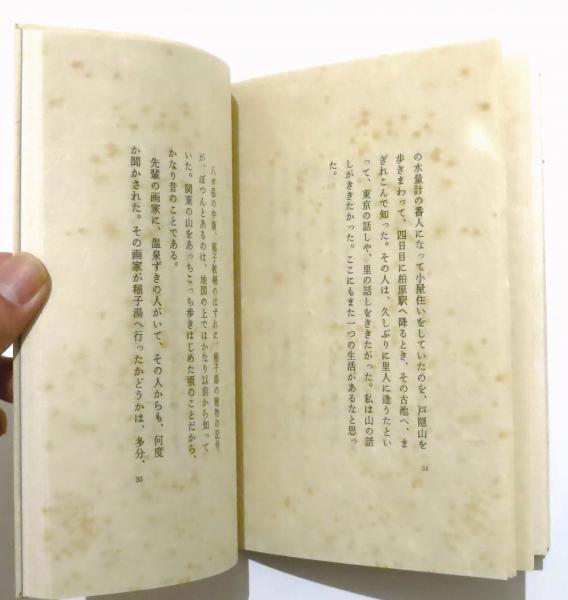 の水量計の番人になって小屋住いをしていたのを、戸隠山を
歩きまわって、四日目に柏原駅へ降るとき、その古池へ、ま
ぎれこんで知った。その人は、久しぶりに里人に逢うたとい
って、東京の話しや、里の話しをききたがった。私は山の話
しがききたかった。ここにもまた一つの生活があるなと思っ
た。
34
八ガ岳の中腹、稲子牧場のはずれに、稲子湯の建物の記号
が、ぽつんとあるのは、地図の上ではかなり以前から知って
いた。関東の山をあっちこっち歩きはじめた頃のことだから、
かなり昔のことである。
先輩の画家に、温泉ずきの人がいて、その人からも、何度
か聞かされた。その画家が稲子湯へ行ったかどうかは、多分、
35